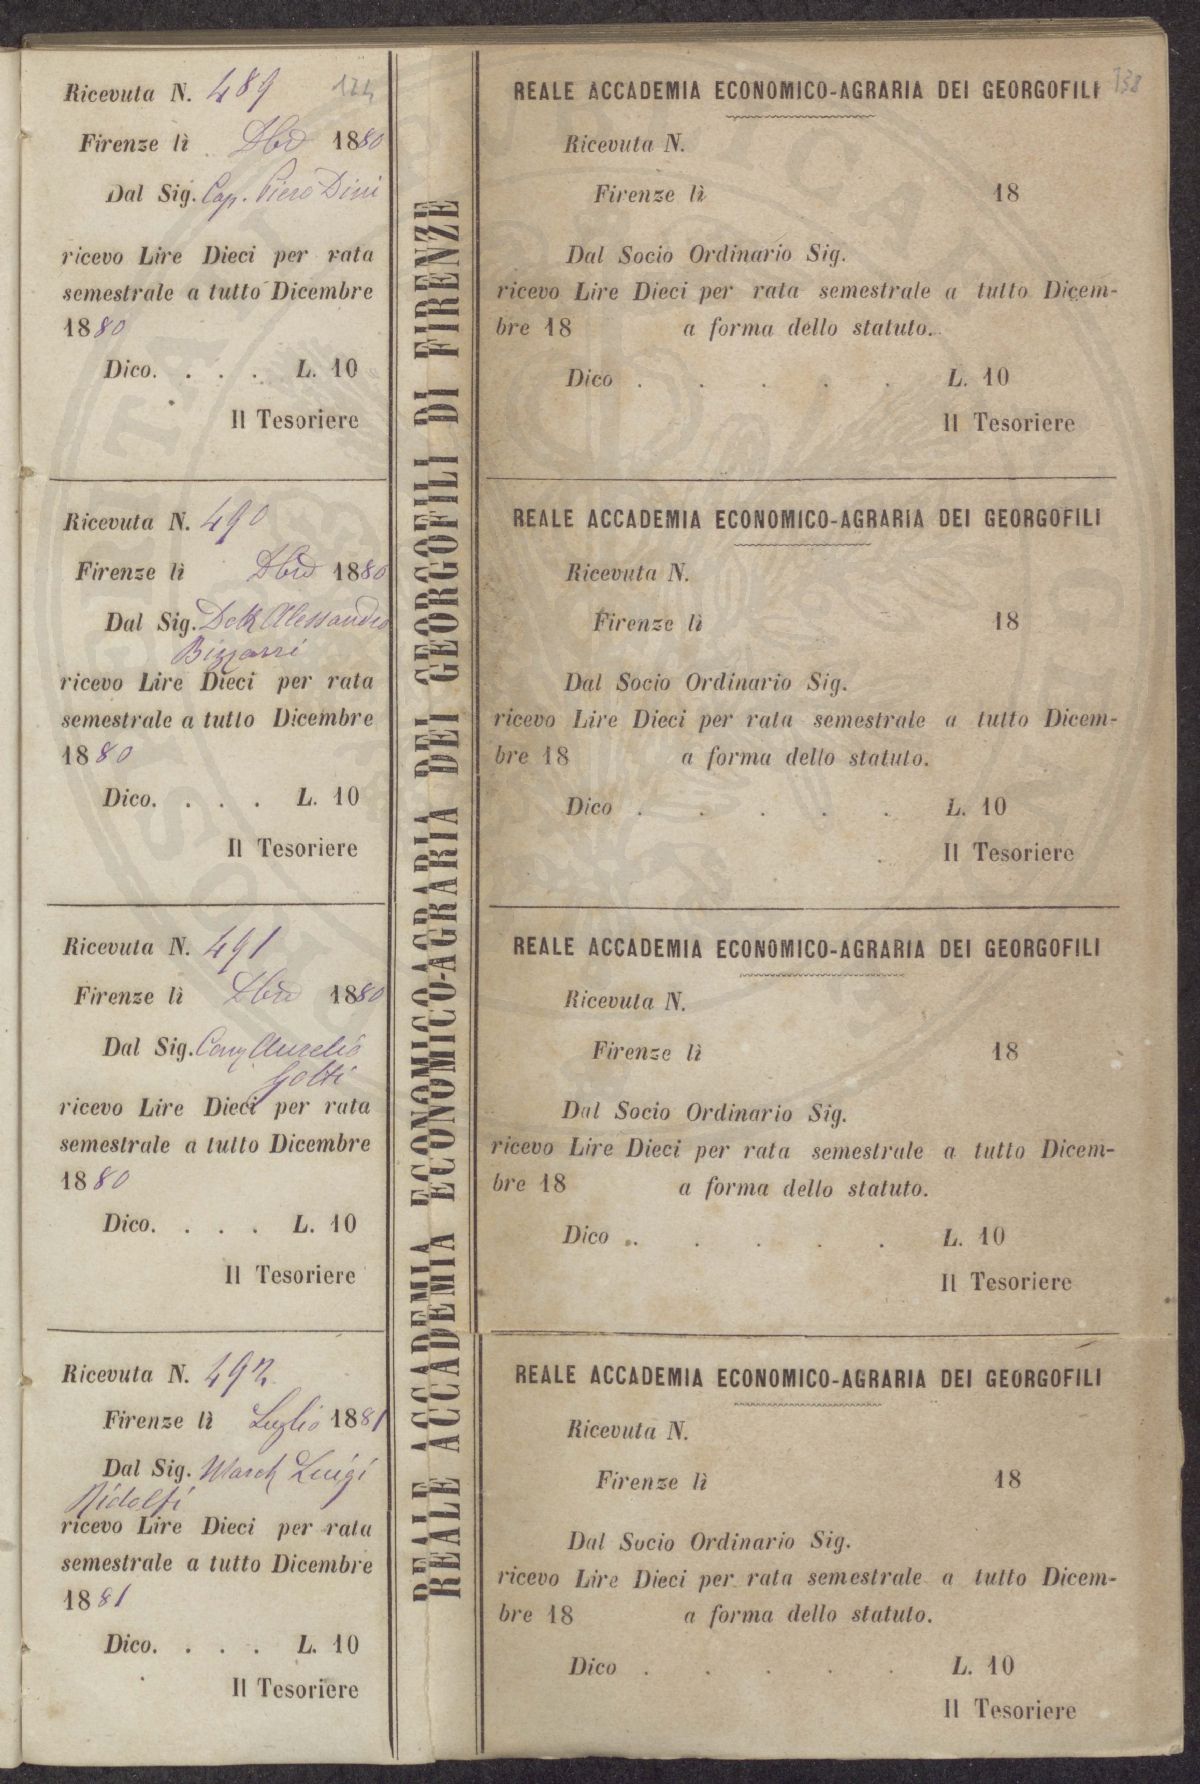 Ricevuta N. 489 124
Firenze lì Dbre 1880
Dal Sig. Cap. Piero Dini
ricevo Lire Dieci per rata
semestrale a tutto Dicembre
1880
Dico. . . . L. 10
Il Tesoriere
Ricevuta N. 490
Firenze lì Dbre 1880
Dal Sig. Dott Alessandro
Bizzarri
ricevo Lire Dieci per rata
semestrale a tutto Dicembre
1880
Dico. . . . L. 10
Il Tesoriere
Ricevuta N. 491
Firenze lì Dbre 1880
Dal Sig. Aurelio
Gotti
ricevo Lire Dieci per rata
semestrale a tutto Dicembre
1880
Dico. . . . L. 10
Il Tesoriere
Ricevuta N. 492
Firenze lì Luglio 1881
Dal Sig. March Luigi
Ridolfi
ricevo Lire Dieci per rata
semestrale a tutto Dicembre
1881
Dico. . . . L. 10
Il Tesoriere
REALE ACCADEMIA ECONOMICO-AGRARIA DEI GEORGOFILI DI FIRENZE
REALE ACCADEMIA ECONOMICO-AGRARIA DEI GEORGOFILI DI FIRENZE
REALE ACCADEMIA ECONOMICO-AGRARIA DEI GEORGOFILI 138
Ricevuta N.
Firenze lì 18
Dal Socio Ordinario Sig.
ricevo Lire Dieci per rata semestrale a tutto Dicem-
bre 18 a forma dello statuto.
Dico . . . . . L. 10
Il Tesoriere
REALE ACCADEMIA ECONOMICO-AGRARIA DEI GEORGOFILI
Ricevuta N.
Firenze lì 18
Dal Socio Ordinario Sig.
ricevo Lire Dieci per rata semestrale a tutto Dicem-
bre 18 a forma dello statuto.
Dico . . . . . L. 10
Il Tesoriere
REALE ACCADEMIA ECONOMICO-AGRARIA DEI GEORGOFILI
Ricevuta N.
Firenze lì 18
Dal Socio Ordinario Sig.
ricevo Lire Dieci per rata semestrale a tutto Dicem-
bre 18 a forma dello statuto.
Dico . . . . . L. 10
Il Tesoriere
REALE ACCADEMIA ECONOMICO-AGRARIA DEI GEORGOFILI
Ricevuta N.
Firenze lì 18
Dal Socio Ordinario Sig.
ricevo Lire Dieci per rata semestrale a tutto Dicem-
bre 18 a forma dello statuto.
Dico . . . . . L. 10
Il Tesoriere